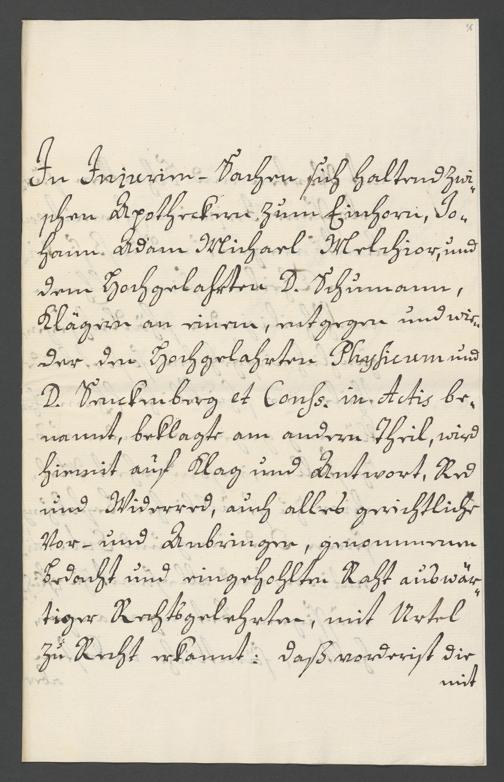 In Injurien-Sachen sich haltend zwi-
schen Apotheckern zum Einhorn, Jo-
hann Adam Michael Melchior, und
dem Hochgelahrten D. Schumann,
Klägern an einem, entgegen und wie-
der den Hochgelahrten Physicum und
D. Senckenberg et Cons. in Actis be-
nannt, beklagte am andern Theil, wird
hiemit auf Klag und Antwort, Red
und Widerred, auch alles gerichtliche
Vor- und Anbringen, genommenen
Bedacht und eingehohlten Raht auswär-
tiger Rechtsgelehrten, mit Urtel
zu Recht erkannt: daß vorderist die
mit